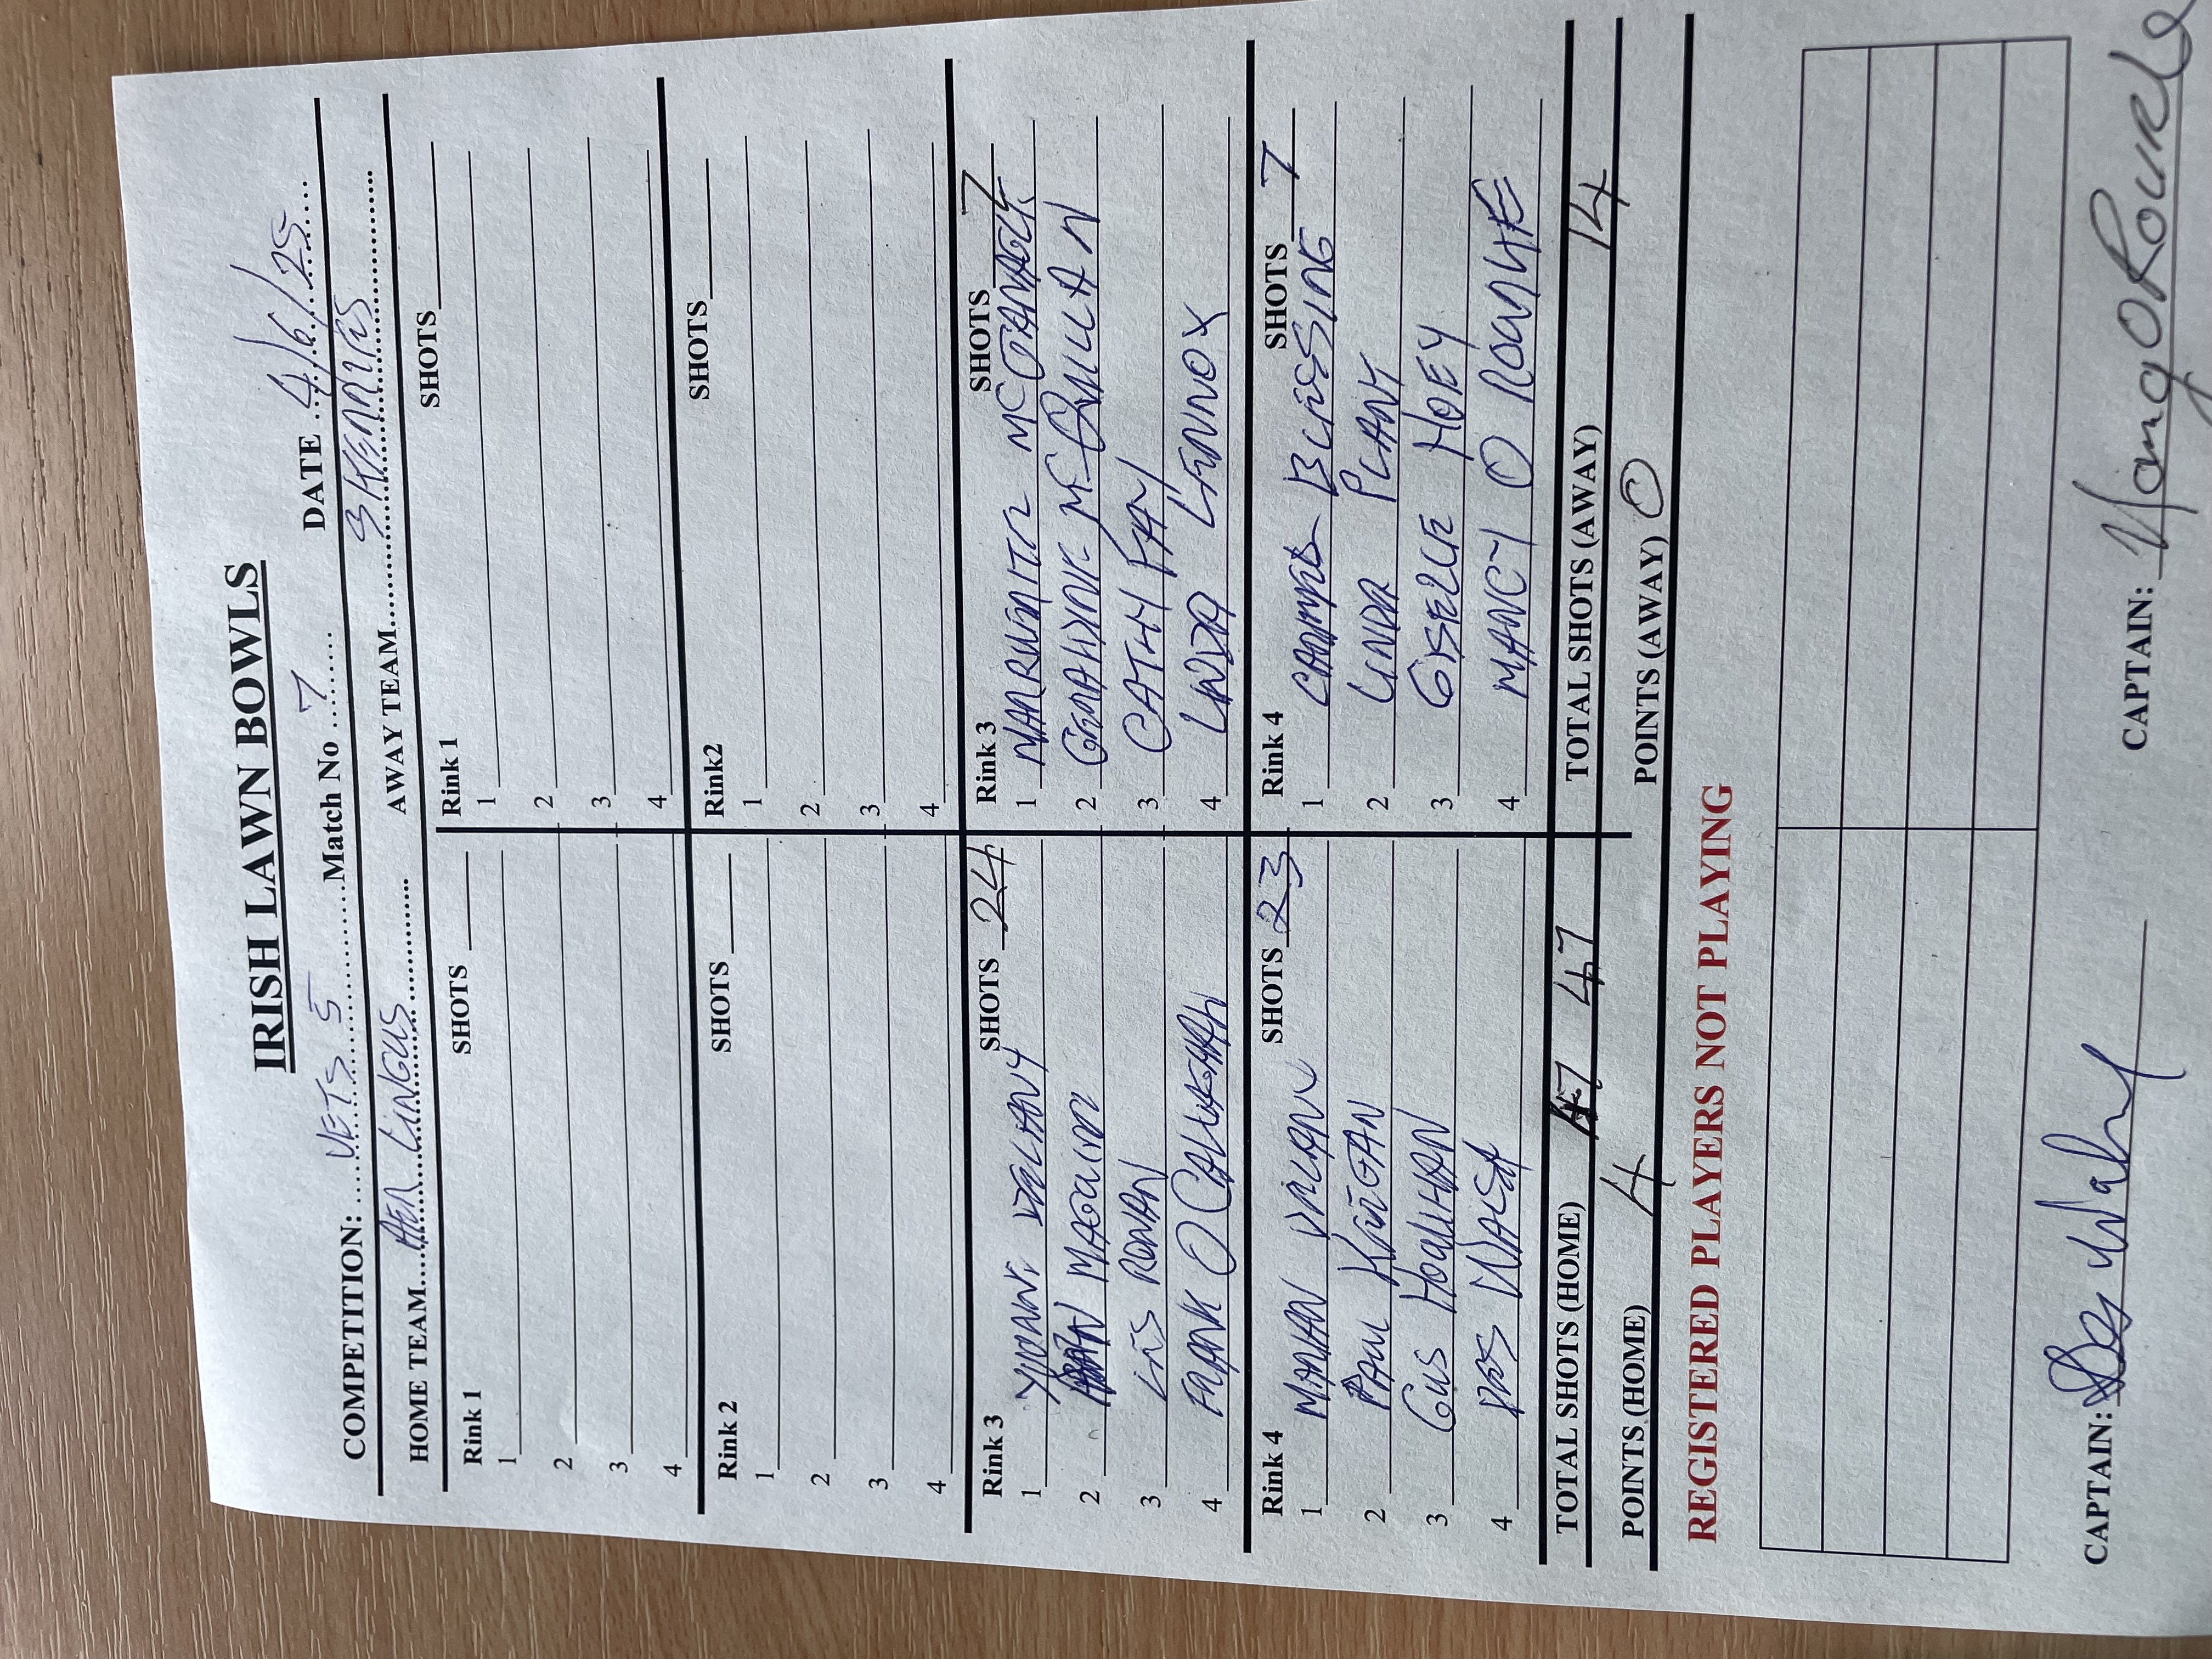 IRISH LAWN BOWLS
COMPETITION: VETS 5 Match No 7 DATE 4/6/25
HOME TEAM AER LINGUS AWAY TEAM SKERRIES
Rink 1 SHOTS Rink 1 SHOTS
1 1
2 2
3 3
4 4
Rink 2 SHOTS Rink2 SHOTS
1 1
2 2
3 3
4 4
Rink 3 SHOTS 24 Rink 3 SHOTS 7
1 YVONNE DELANY 1 MARGUERITE MC GRANAGLE
2 MAGUIRE 2 GERALDINE MCQUILLAN
3 LES RONAN 3 CATHY FAY
4 FRANK O CALLAGHAN 4 LINDA LENNOX
Rink 4 SHOTS 23 Rink 4 SHOTS 7
1 MARIAN 1 BLESSING
2 PAUL KEEGAN 2 LINDA PLANT
3 GUS HOULIHAN 3 GISELLE HOEY
4 DES WALSH 4 NANCY O ROURKE
TOTAL SHOTS (HOME) 47 TOTAL SHOTS (AWAY) 14
POINTS (HOME) 4 POINTS (AWAY) 0
REGISTERED PLAYERS NOT PLAYING
CAPTAIN: Des Walsh CAPTAIN: Nancy O Rourke